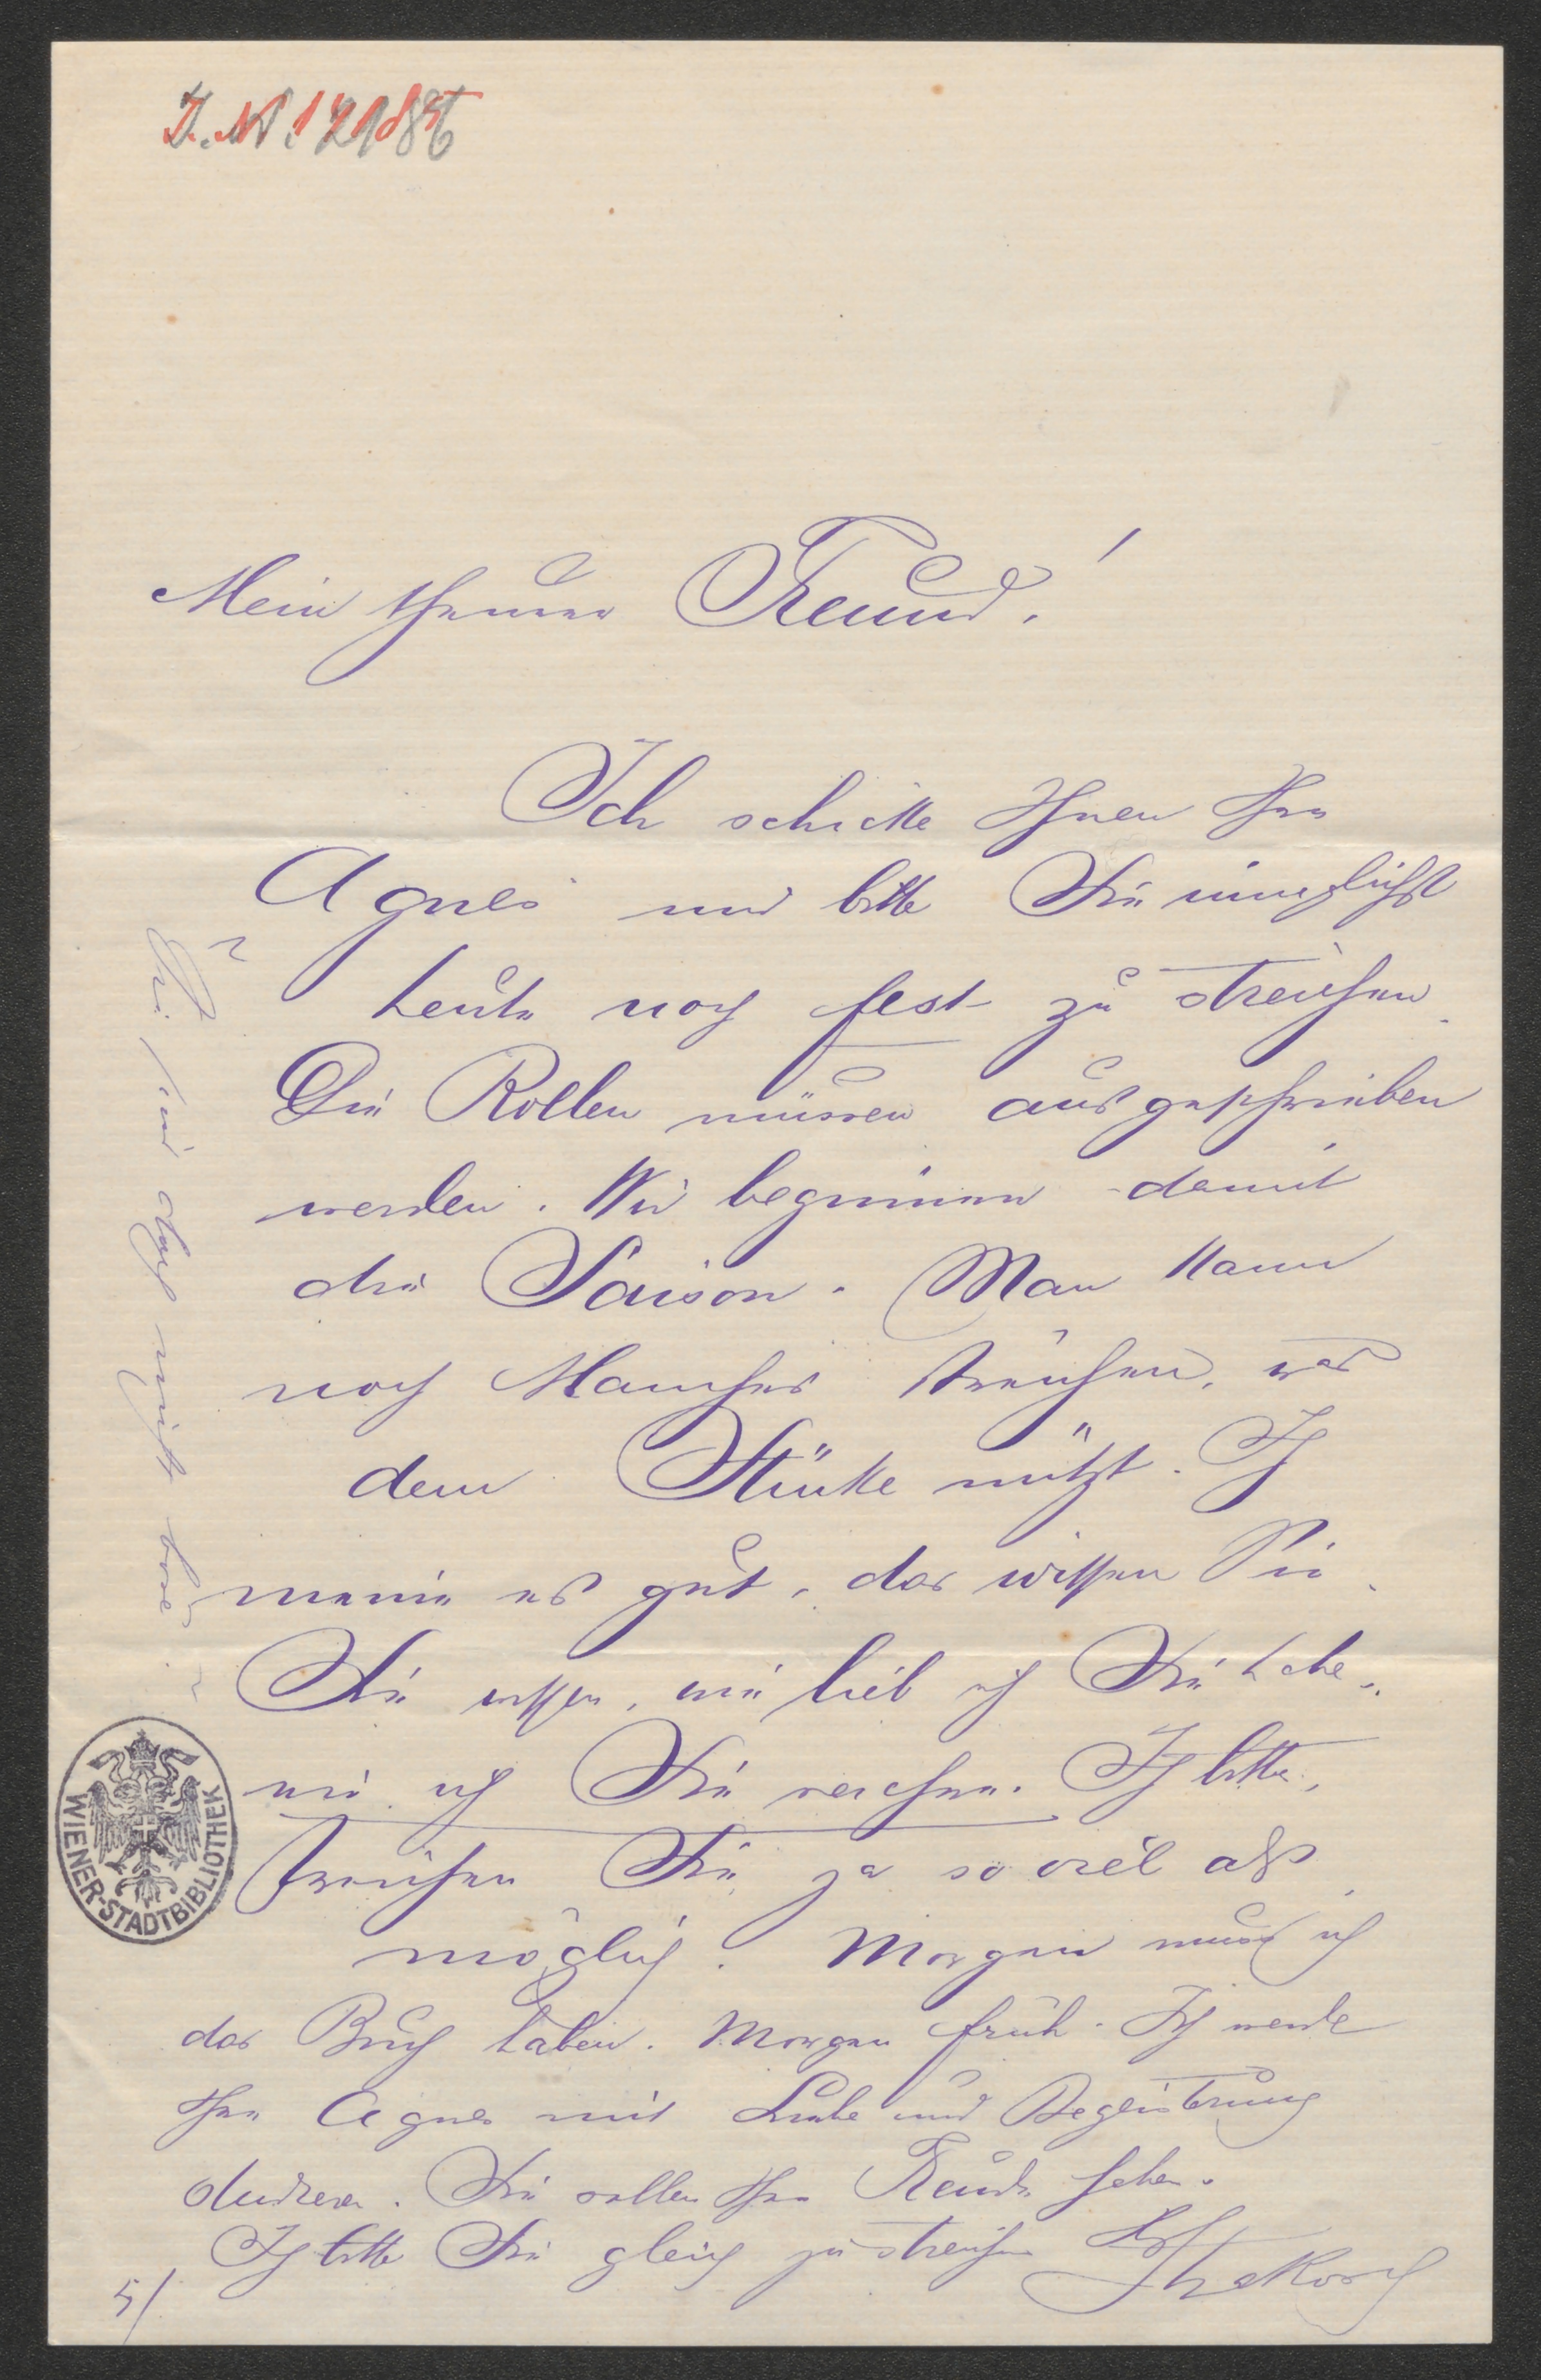 I. N. 172186
Mein theurer Freund!
Ich schicke Ihnen Ihre
Agnes und bitte Sie inniglichst
heute noch fest zu streichen.
Die Rollen müssen ausgeschrieben
werden. Wir beginnen damit
die Saison. Man kann
noch Manches streichen, was
dem Stücke nützt. Ich
meine es gut, das wissen Sie.
Sie wissen, wie lieb ich Sie habe,
wie ich Sie verehre. Ich bitte,
streichen Sie ja so viel als
möglich. Morgen muss ich
das Buch haben. Morgen früh. Ich werde
Ihre Agnes mit Liebe und Begeisterung
studieren. Sie sollen Ihre Freude haben.
Ich bitte Sie gleich zu streichen
Strakosch
Sie sind doch nicht böse?
5/
WIENER-STADTBIBLIOTHEK